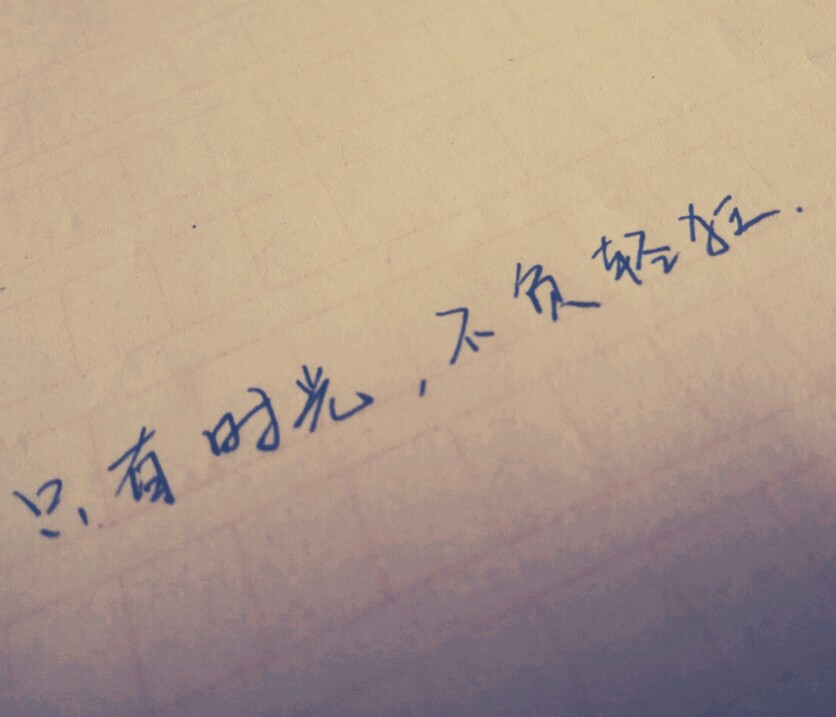 只有时光,不负轻狂.